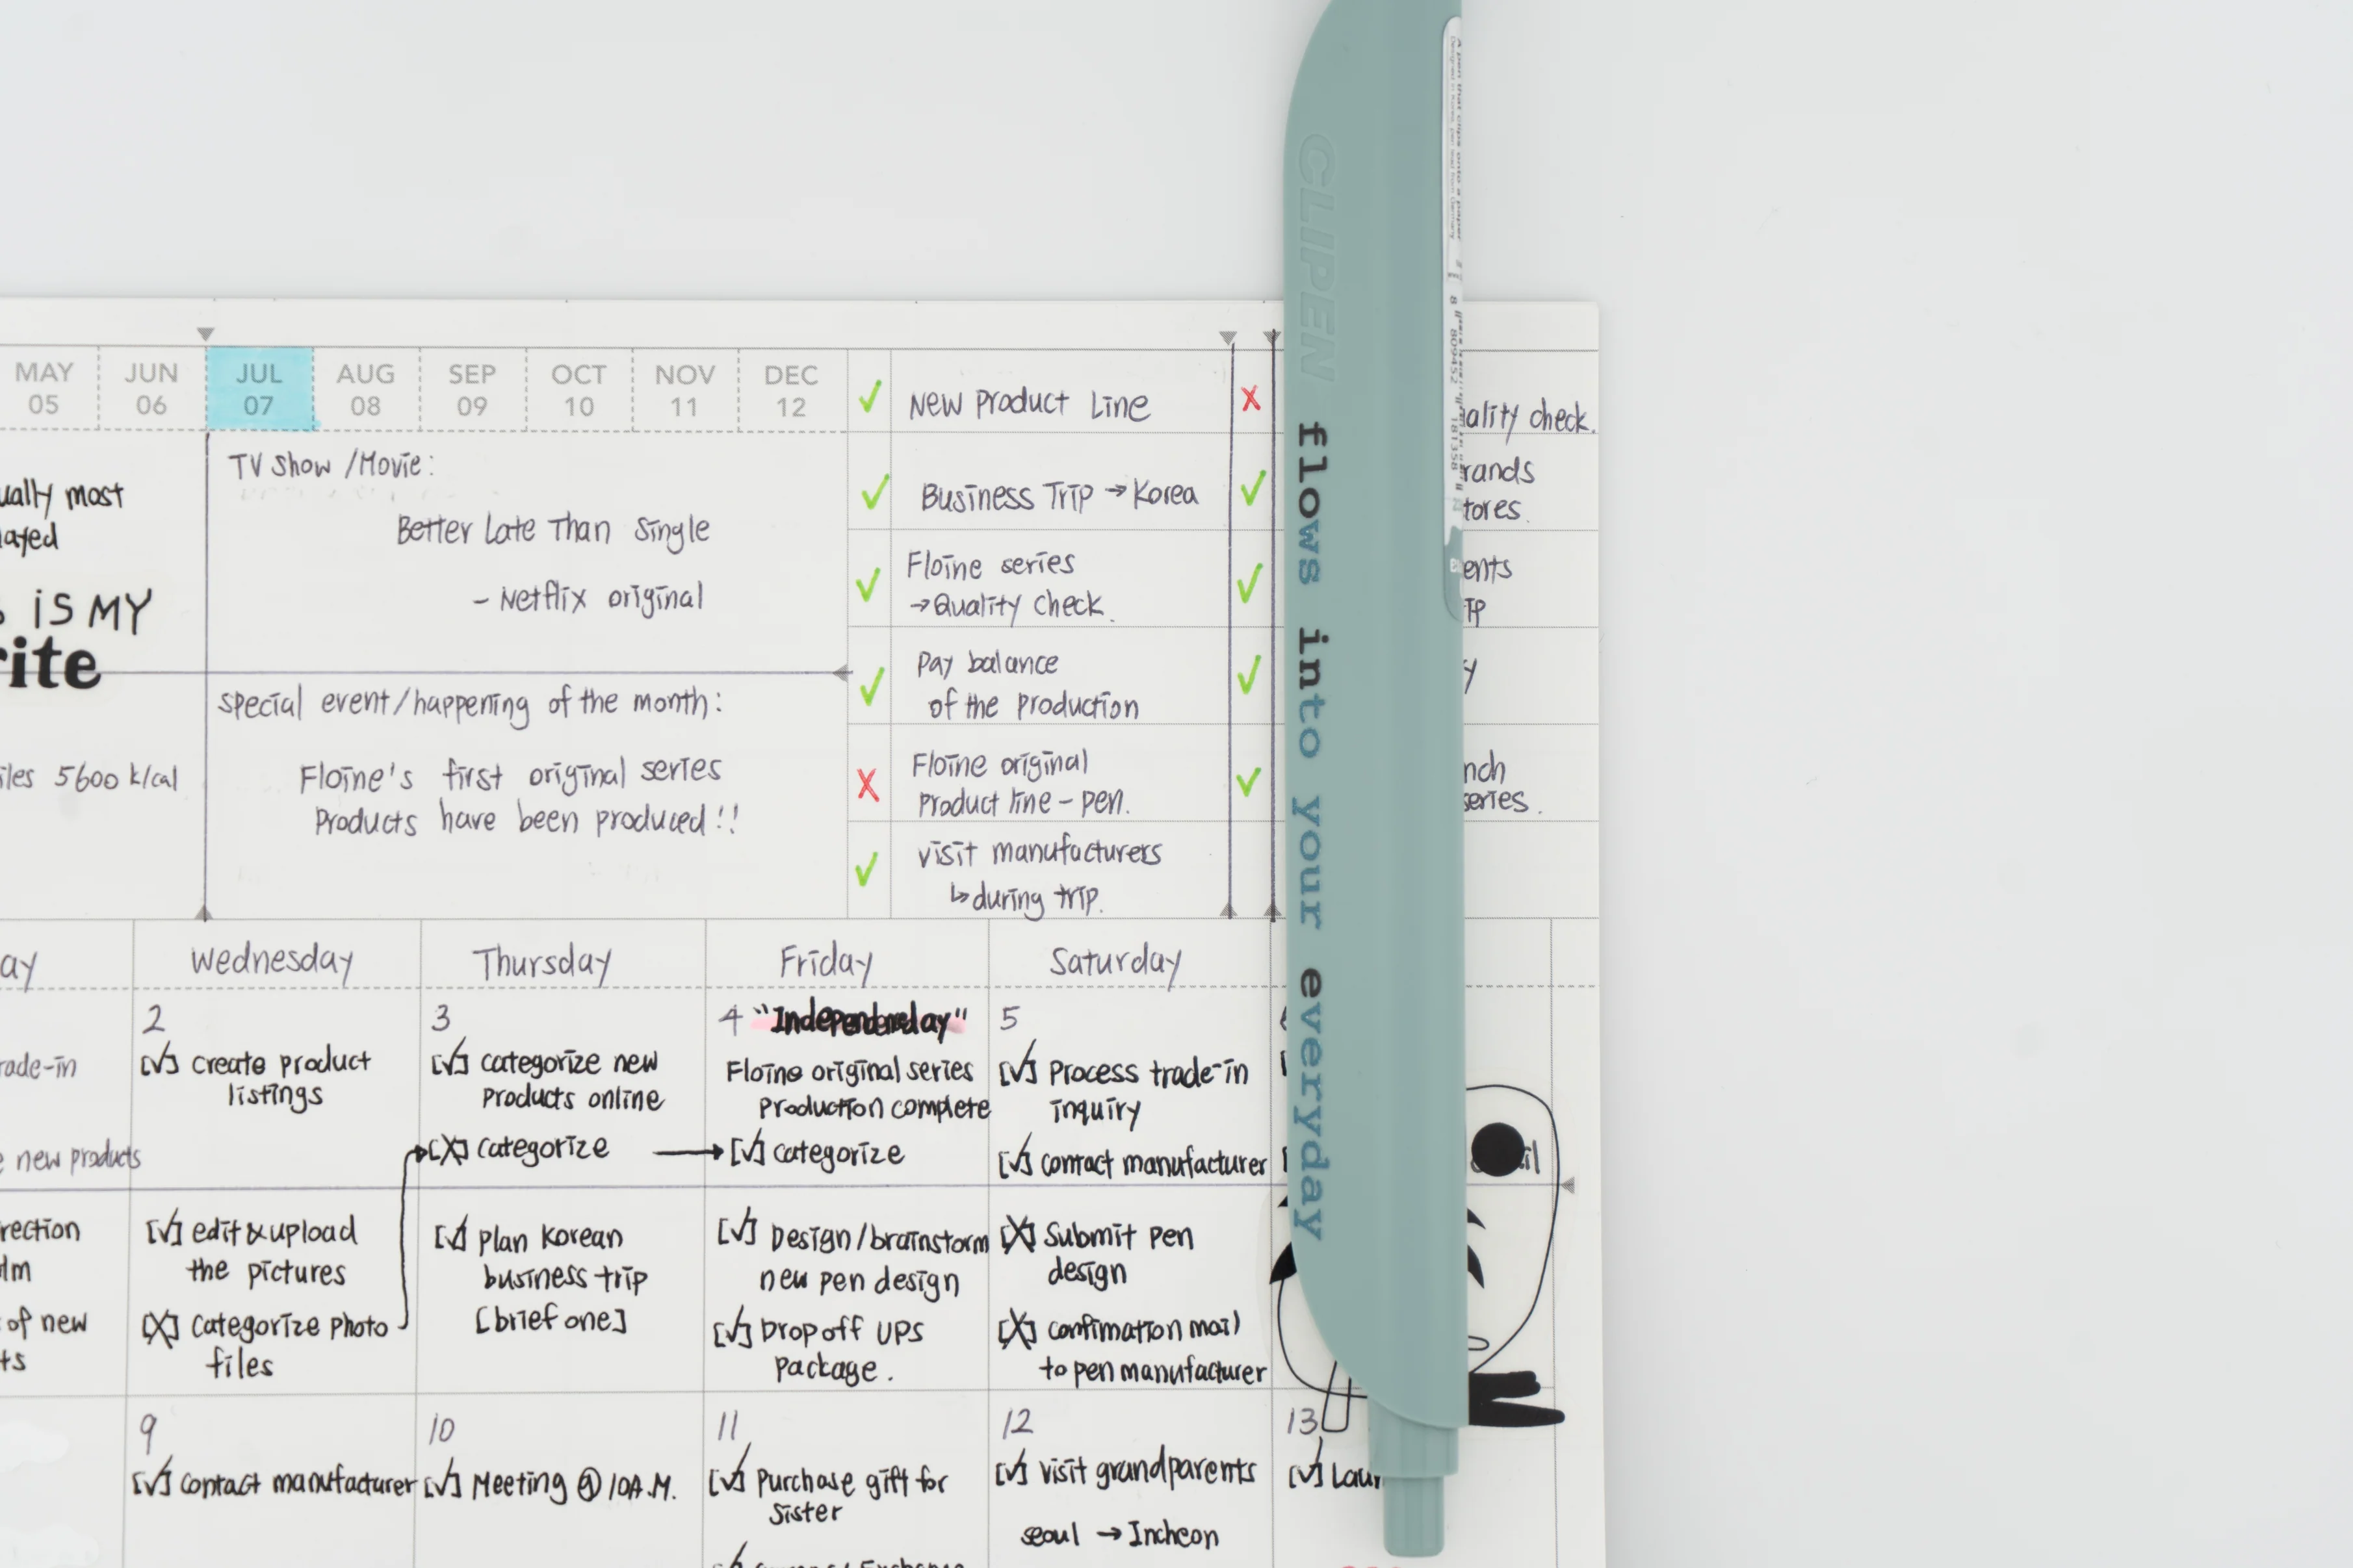 CLIPEN
flows into your everyday
A pen that clips onto a paper
MAY JUN JUL AUG SEP OCT NOV DEC
05 06 07 08 09 10 11 12
ually most
ayed
IS MY
rite
iles 5600 k/cal
TV Show / Movie:
Better Late Than Single
- Netflix original
Special event/happening of the month:
Floine's first original series
Products have been produced!!
✓ New Product Line
✓ Business Trip → Korea
✓ Floine series
→ Quality check.
✓ Pay balance
of the production
X Floine original
Product line - pen.
✓ visit manufacturers
↳ during trip.
X ality check.
✓ rands
tores.
✓ ents
ip
✓ y
✓ nch
series.
ay Wednesday Thursday Friday Saturday
rade-in
e new products
rection
of new
ts
2
[✓] create product
listings
[✓] edit & upload
the pictures
[X] categorize photo
files
3
[✓] categorize new
products online
[X] categorize →
[✓] plan Korean
business trip
[brief one]
4 "Independenday"
Floine original series
Production complete
[✓] categorize
[✓] Design/brainstorm
new pen design
[✓] Drop off UPS
package.
5
[✓] Process trade-in
inquiry
[✓] contact manufacturer
[X] Submit pen
design
[X] confimation mail
to pen manufacturer
9
[✓] contact manufacturer
10
[✓] Meeting @ 10A.M.
11
[✓] Purchase gift for
Sister
12
[✓] visit grandparents
seoul → Incheon
13
[✓] Laun